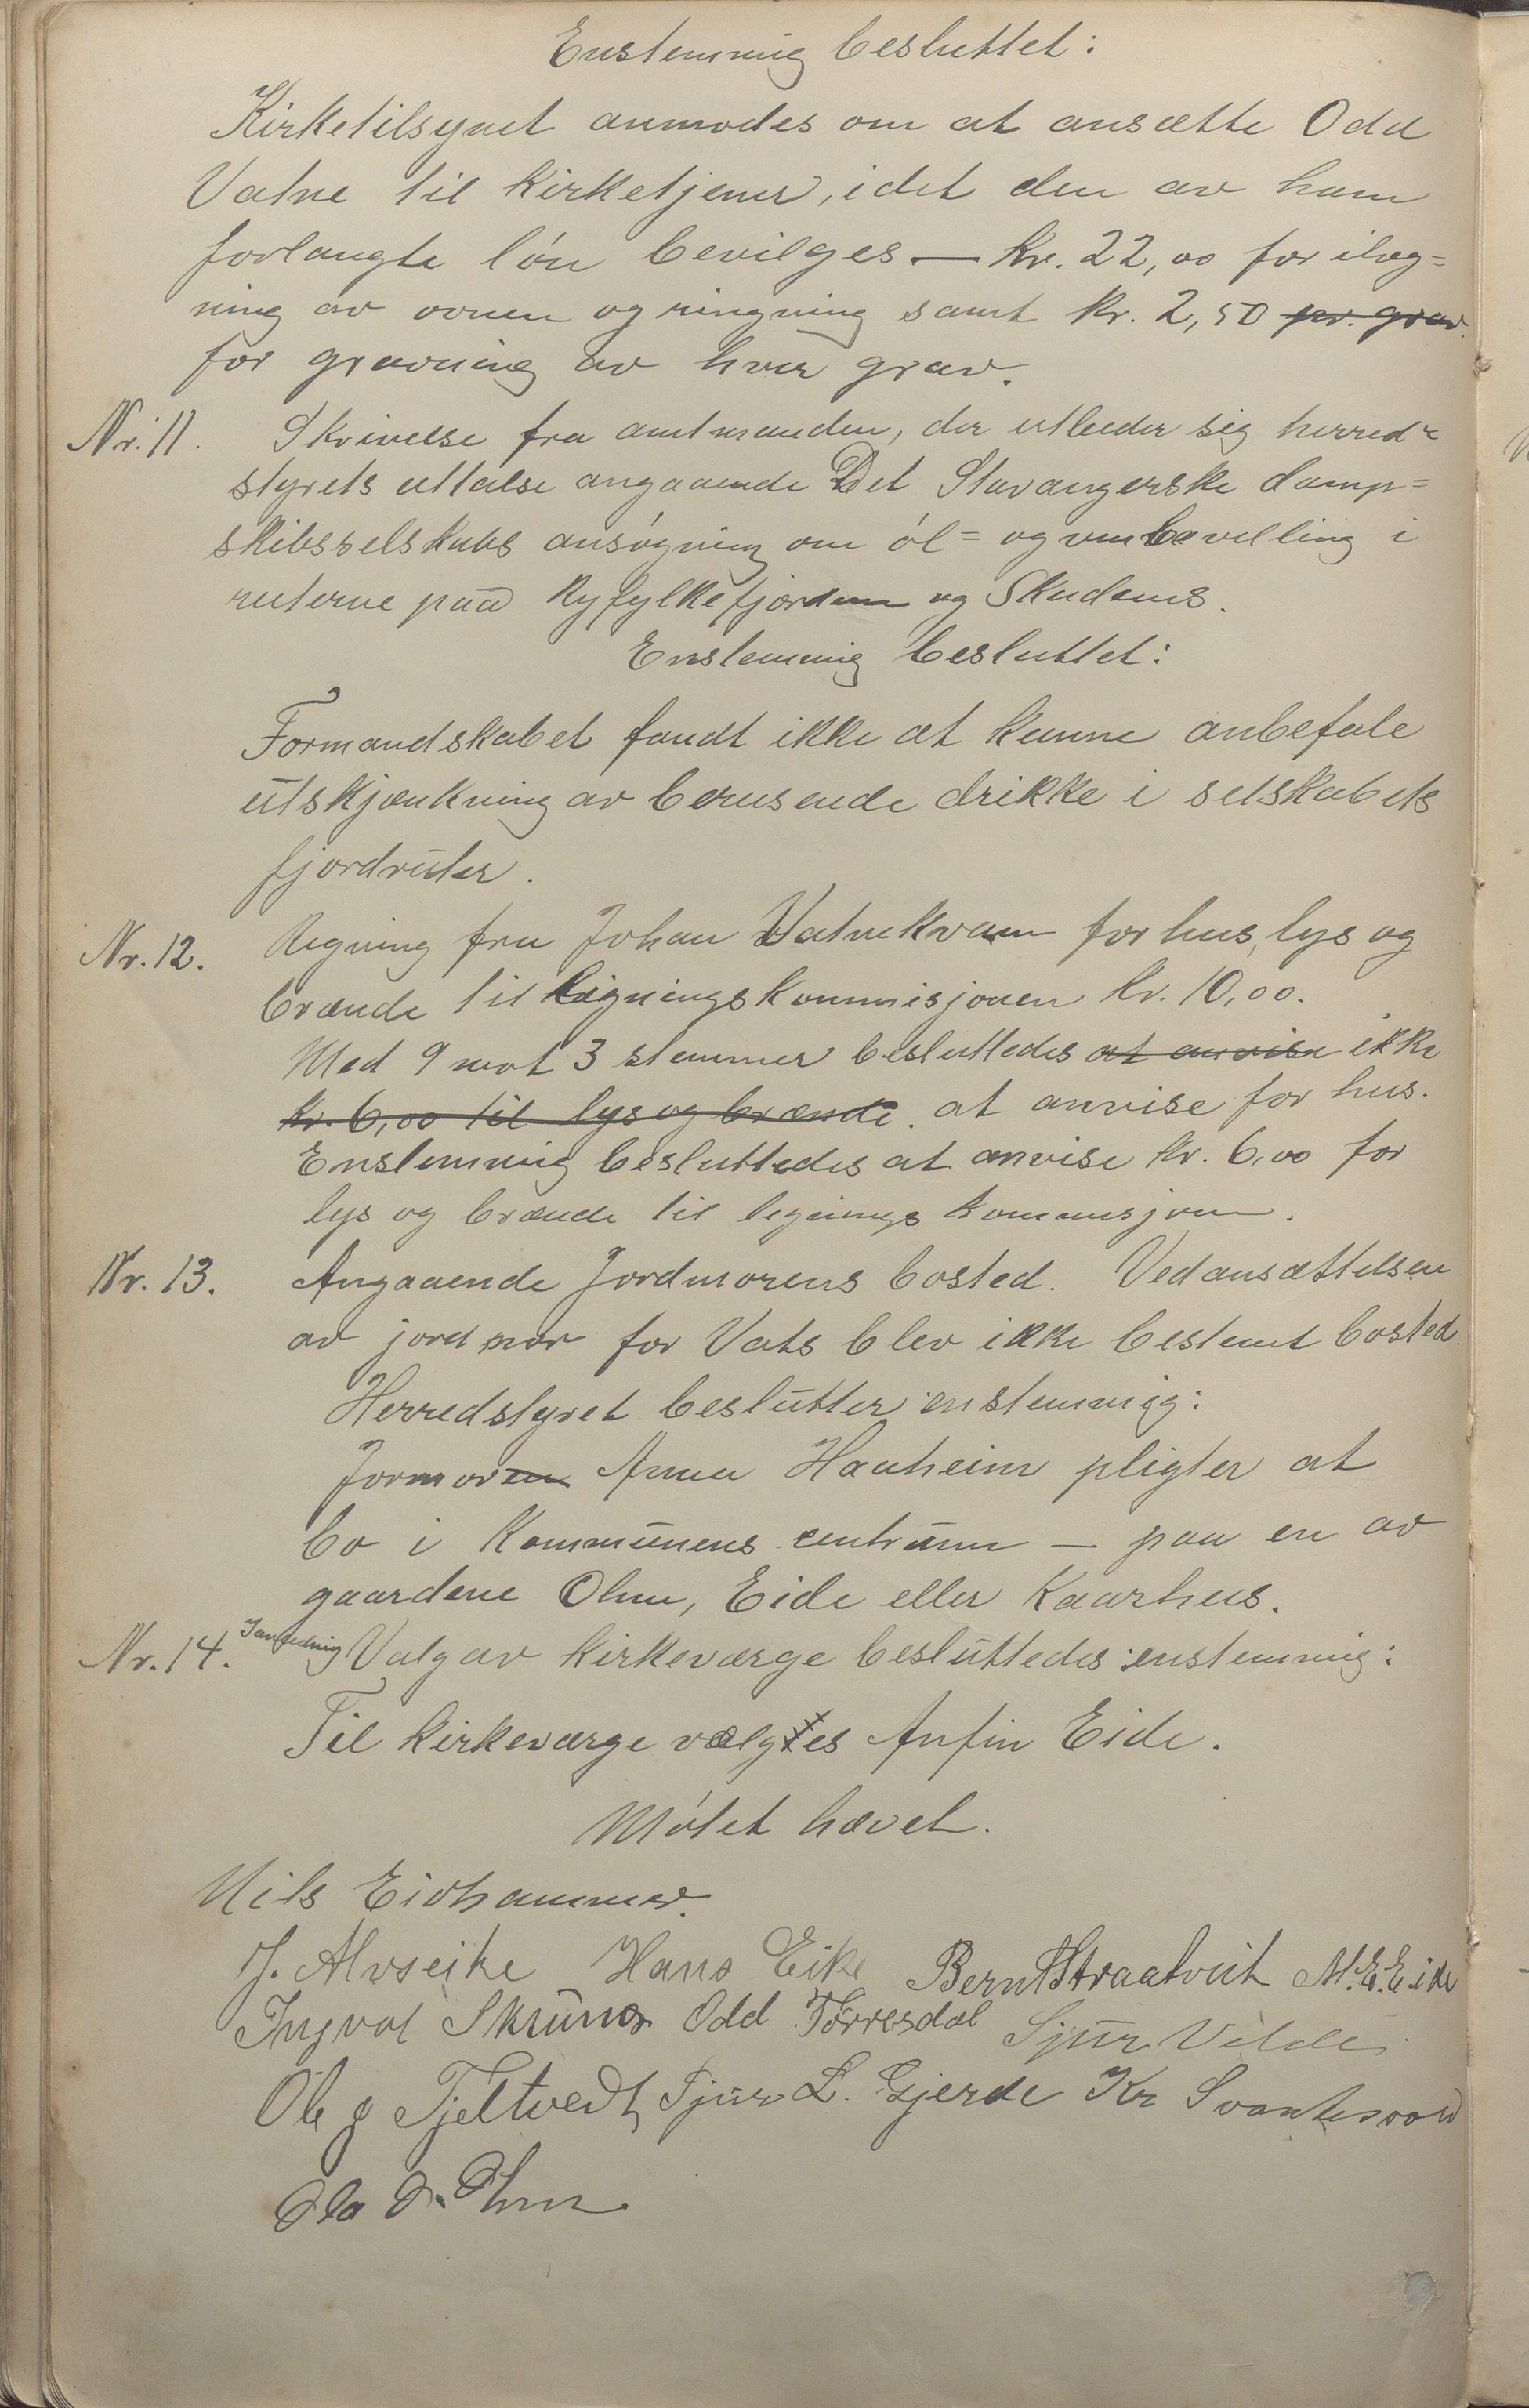 Enstemmig besluttet:
Kirketilsynet anmodes om at ansætte Odd
Vatne til kirketjener, idet den av ham
forlangte løn bevilges — kr. 22,00 for ilæg=
ning av ovnen og ringning samt kr. 2,50 pr. grav.
for gravning av hver grav.
Nr. 11. Skrivelse fra amtmanden, der utbeder sig herred=
styrets uttalse angaaende Det Stavangerske damp=
skibsselskabs ansøgning om øl= og vinbevilling i
ruterne paa Ryfylkefjorden og Skudenes.
Enstemmig besluttet:
Formandskabet fandt ikke at kunne anbefale
utskjænkning av berusende drikke i selskabets
fjordruter.
Nr. 12. Regning fra Johan Vatnekvam for hus, lys og
brænde til ligningskommisjonen kr. 10,00.
Med 9 mot 3 stemmer besluttedes at anvise ikke
kr. 6,00 til lys og brænde. at anvise for hus.
Enstemmig besluttedes at anvise kr. 6,00 for
lys og brænde til ligningskommisjonen.
Nr. 13. Angaaende Jordmorens bosted. Ved ansættelsen
av jordmor for Vats blev ikke bestemt bosted.
Herredstyret beslutter enstemmig:
Jormoren Anna Hauheim pligter at
bo i Kommunens centrum — paa en av
gaardene Ohm, Eide eller Kaarhus.
Nr. 14. I anledning Valg av kirkeværge besluttedes enstemmig:
Til kirkeværge vælgtes Anfin Eide.
Møtet hævet.
Nils Eidhammer.
J. Alvseike Hans Eike Bernt Straatveit M. E. Eike
Ingvol Odd Tørresdal Sjur Velde
Ole J Fjeltvedt Sjur L. Gjerde Kr Svantesvold
Ola O. Ohm